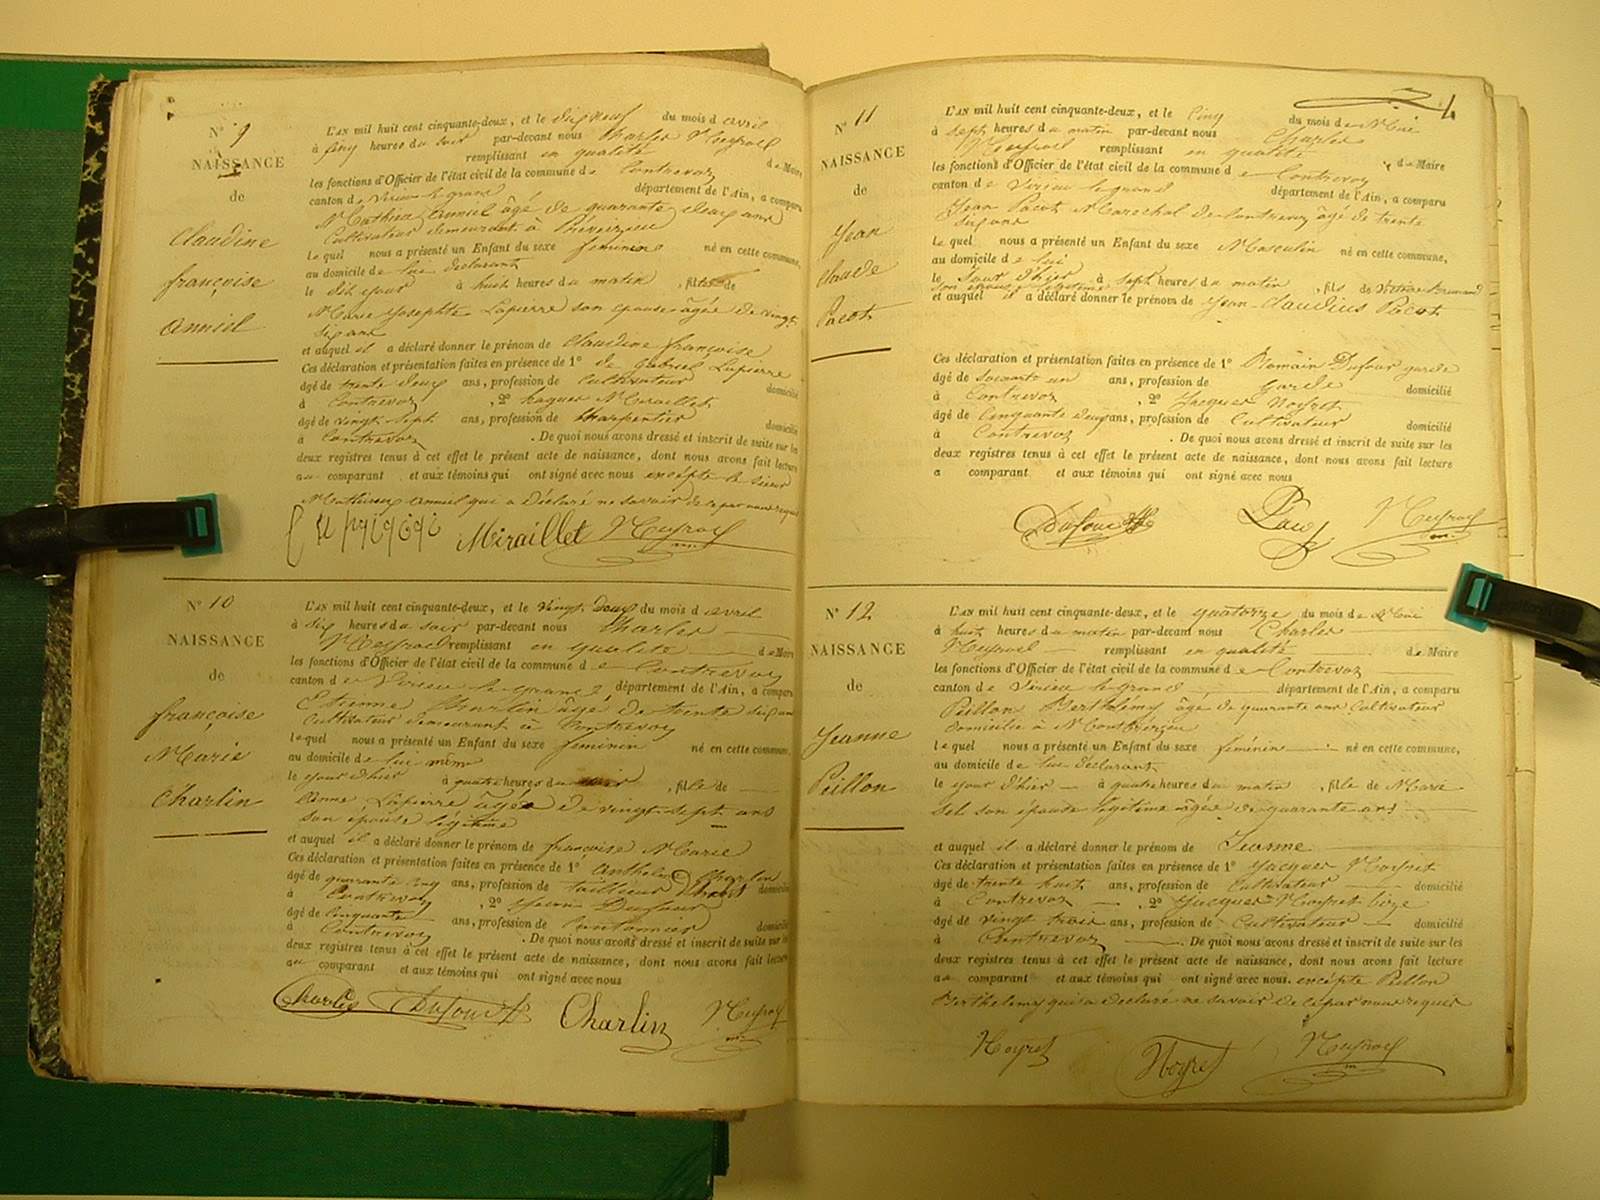 N° 9
NAISSANCE
de
Claudine
françoise
anniel
L'AN mil huit cent cinquante-deux, et le dix neuf du mois d avril
à cinq heures du soir par-devant nous Charles
remplissant en qualité de Maire
les fonctions d'Officier de l'état civil de la commune de Contrevoz
canton de Virieu le grand département de l'Ain, a comparu
Mathieu anniel âgé de quarante deux ans
Cultivateur demeurant à
lequel nous a présenté un Enfant du sexe feminin né en cette commune,
au domicile de lui déclarant
le dit jour à huit heures du matin , fille de
Marie Josephte Lapierre son epouse âgée de vingt
six ans
et auquel il a déclaré donner le prénom de Claudine françoise
Ces déclaration et présentation faites en présence de 1° de Gabriel Lapierre
âgé de trente deux ans, profession de Cultivateur domicilié
à Contrevoz , 2° Miraillet
âgé de vingt sept ans, profession de Charpentier domicilié
à Contrevoz . De quoi nous avons dressé et inscrit de suite sur les
deux registres tenus à cet effet le présent acte de naissance, dont nous avons fait lecture
au comparant et aux témoins qui ont signé avec nous excépté le sieur
Mathieu anniel qui a déclaré ne savoir de ce par nous requis
Miraillet
N° 10
NAISSANCE
de
françoise
Marie
Charlin
L'AN mil huit cent cinquante-deux, et le vingt deux du mois d avril
à six heures du soir par-devant nous Charles
remplissant en qualité de Maire
les fonctions d'Officier de l'état civil de la commune de Contrevoz
canton de Virieu le grand, département de l'Ain, a comparu
Etienne Charlin âgé de trente six ans
Cultivateur demeurant à Contrevoz
lequel nous a présenté un Enfant du sexe féminin né en cette commune,
au domicile de lui même
le jour d'hier à quatre heures du soir , fille de
Lapierre âgée de vingt sept ans
son épouse légitime
et auquel il a déclaré donner le prénom de françoise Marie
Ces déclaration et présentation faites en présence de 1° Anthelme Charlin
âgé de quarante cinq ans, profession de tailleur d'habit domicilié
à Contrevoz , 2° Dufour
âgé de Cinquante ans, profession de Cantonnier domicilié
à Contrevoz . De quoi nous avons dressé et inscrit de suite sur les
deux registres tenus à cet effet le présent acte de naissance, dont nous avons fait lecture
au comparant et aux témoins qui ont signé avec nous
Charlin Dufour Charlin
N° 11
NAISSANCE
de
Jean
claude
Pacot
L'AN mil huit cent cinquante-deux, et le Cinq du mois de Mai
à sept heures du matin par-devant nous Charles
remplissant en qualité de Maire
les fonctions d'Officier de l'état civil de la commune de Contrevoz
canton de Virieu le grand département de l'Ain, a comparu
Jean Pacot Marechal de Contrevoz âgé de trente
six ans
lequel nous a présenté un Enfant du sexe Masculin né en cette commune,
au domicile de lui
le Jour d'hier à sept heures du matin , fils de
son épouse légitime
et auquel il a déclaré donner le prénom de Jean-Claudius Pacot
Ces déclaration et présentation faites en présence de 1° Romain Dufour garde
âgé de soixante un ans, profession de Garde domicilié
à Contrevoz , 2° Jacques Noyret
âgé de Cinquante deux ans, profession de Cultivateur domicilié
à Contrevoz . De quoi nous avons dressé et inscrit de suite sur les
deux registres tenus à cet effet le présent acte de naissance, dont nous avons fait lecture
a comparant et aux témoins qui ont signé avec nous
Dufour
N° 12
NAISSANCE
de
Jeanne
Peillon
L'AN mil huit cent cinquante-deux, et le quatorze du mois de Mai
à huit heures du matin par-devant nous Charles
remplissant en qualité de Maire
les fonctions d'Officier de l'état civil de la commune de Contrevoz
canton de Virieu le grand département de l'Ain, a comparu
Peillon Berthelemy âgé de quarante ans Cultivateur
domicilié à
lequel nous a présenté un Enfant du sexe féminin né en cette commune,
au domicile de lui déclarant
le jour d'hier à quatre heures du matin , fille de Marie
son épouse légitime âgée de quarante ans
et auquel il a déclaré donner le prénom de Jeanne
Ces déclaration et présentation faites en présence de 1° Jacques Noyret
âgé de trente huit ans, profession de Cultivateur domicilié
à Contrevoz , 2° Jacques Noyret
âgé de vingt trois ans, profession de Cultivateur domicilié
à Contrevoz . De quoi nous avons dressé et inscrit de suite sur les
deux registres tenus à cet effet le présent acte de naissance, dont nous avons fait lecture
au comparant et aux témoins qui ont signé avec nous. excépté Peillon
Berthelemy qui a déclaré ne savoir de ce par nous requis
Noyret Noyret